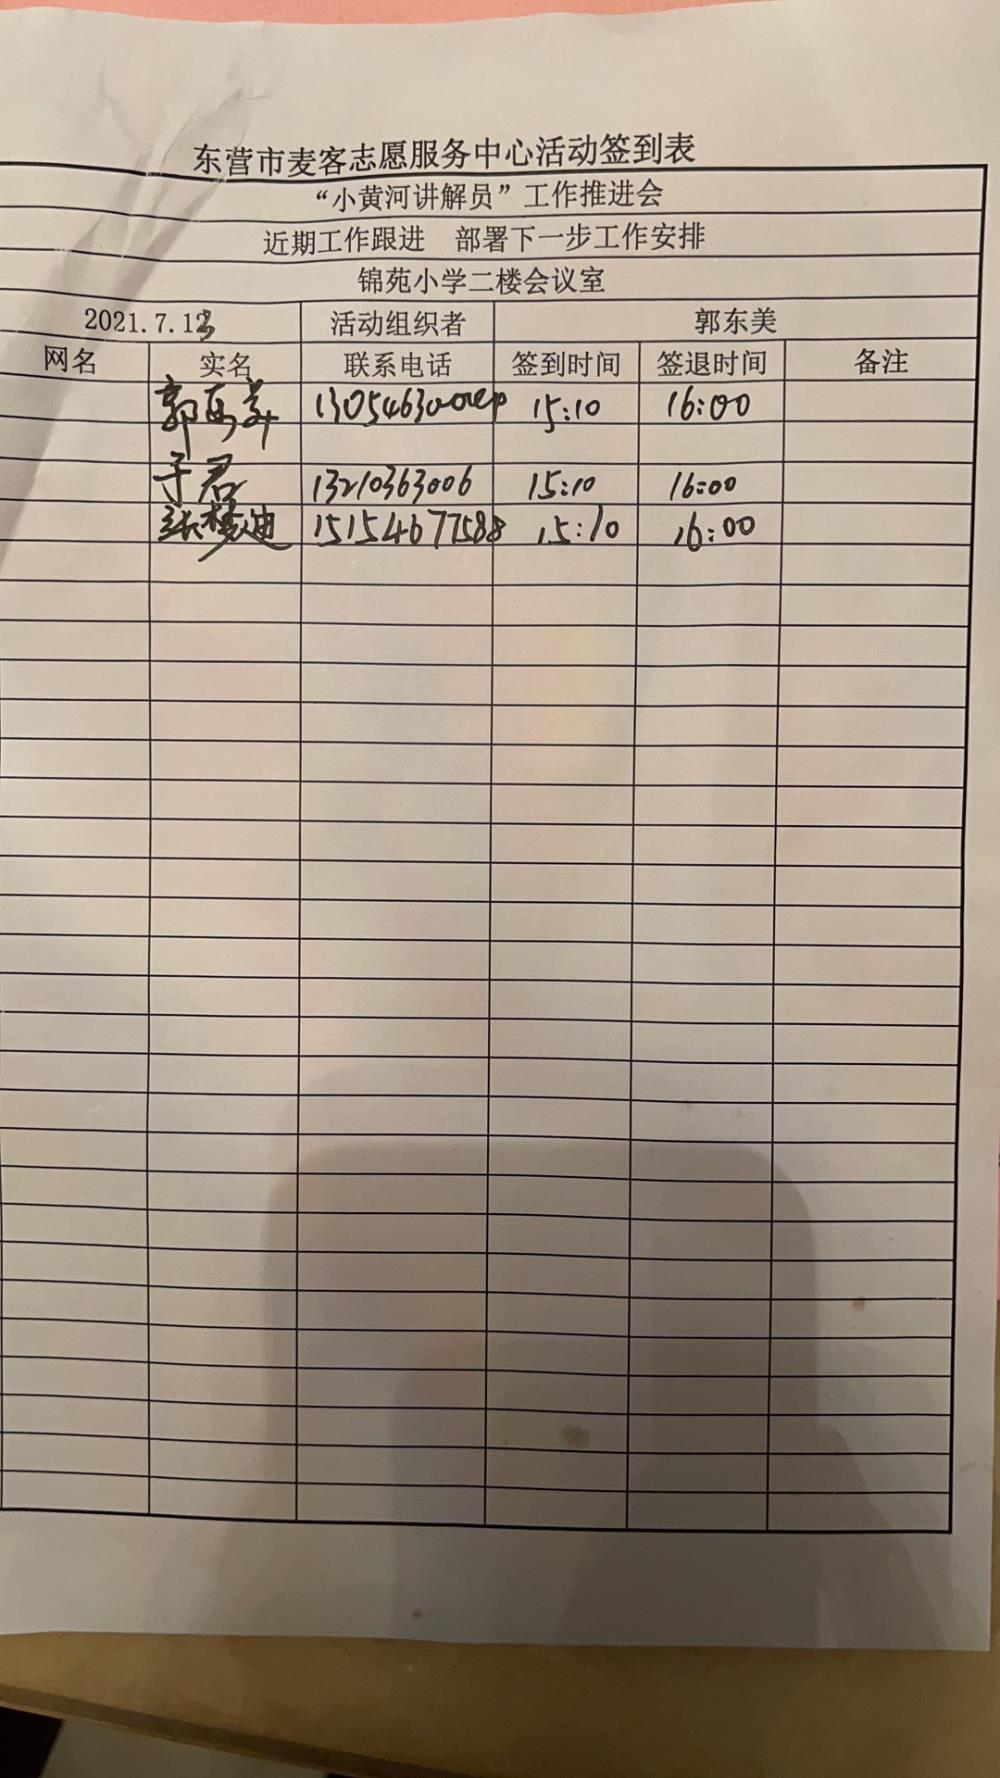 东营市麦客志愿服务中心活动签到表
“小黄河讲解员”工作推进会
近期工作跟进 部署下一步工作安排
锦苑小学二楼会议室
2021.7.13 活动组织者 郭东美
网名 实名 联系电话 签到时间 签退时间 备注
郭东美 15:10 16:00
于君 13210363006 15:10 16:00
张梦迪 15154677588 15:10 16:00